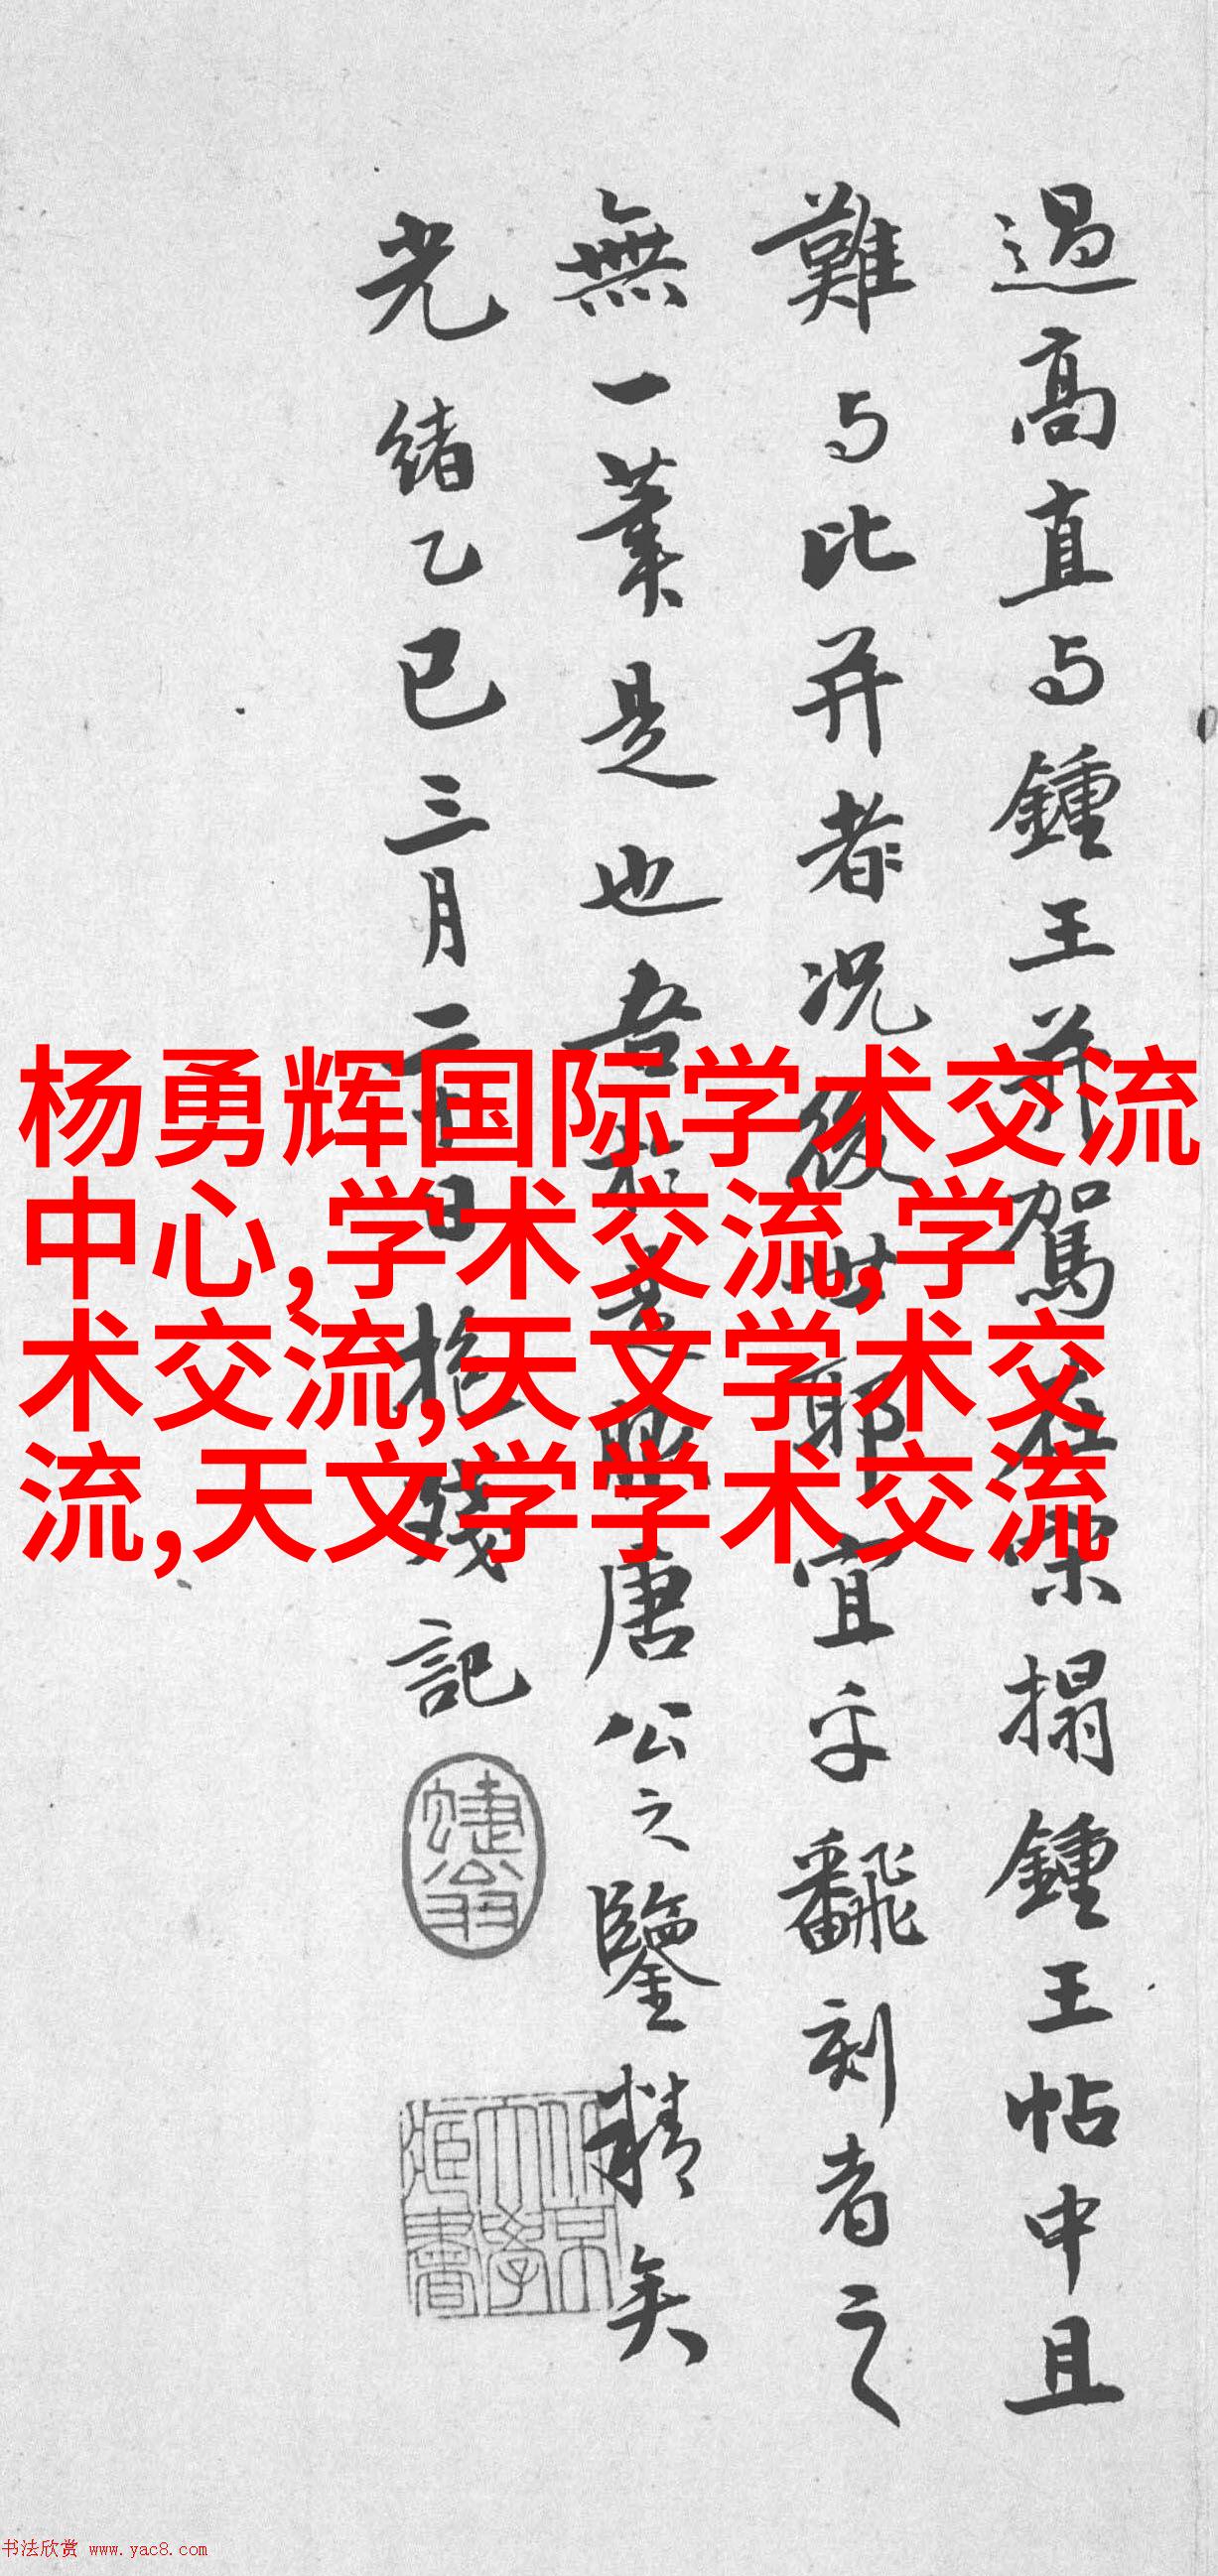 過高直与鍾王並駕在宋搨鍾王帖中且
難与比并者况後世耶宜乎飜刻者之
無一業是也吾於是服唐公之鑒精矣
光緒乙巳三月二十日抱残記
杨勇辉国际学术交流
中心,学术交流,学
术交流,天文学术交
流,天文学学术交流
书法欣赏 www.yac8.com